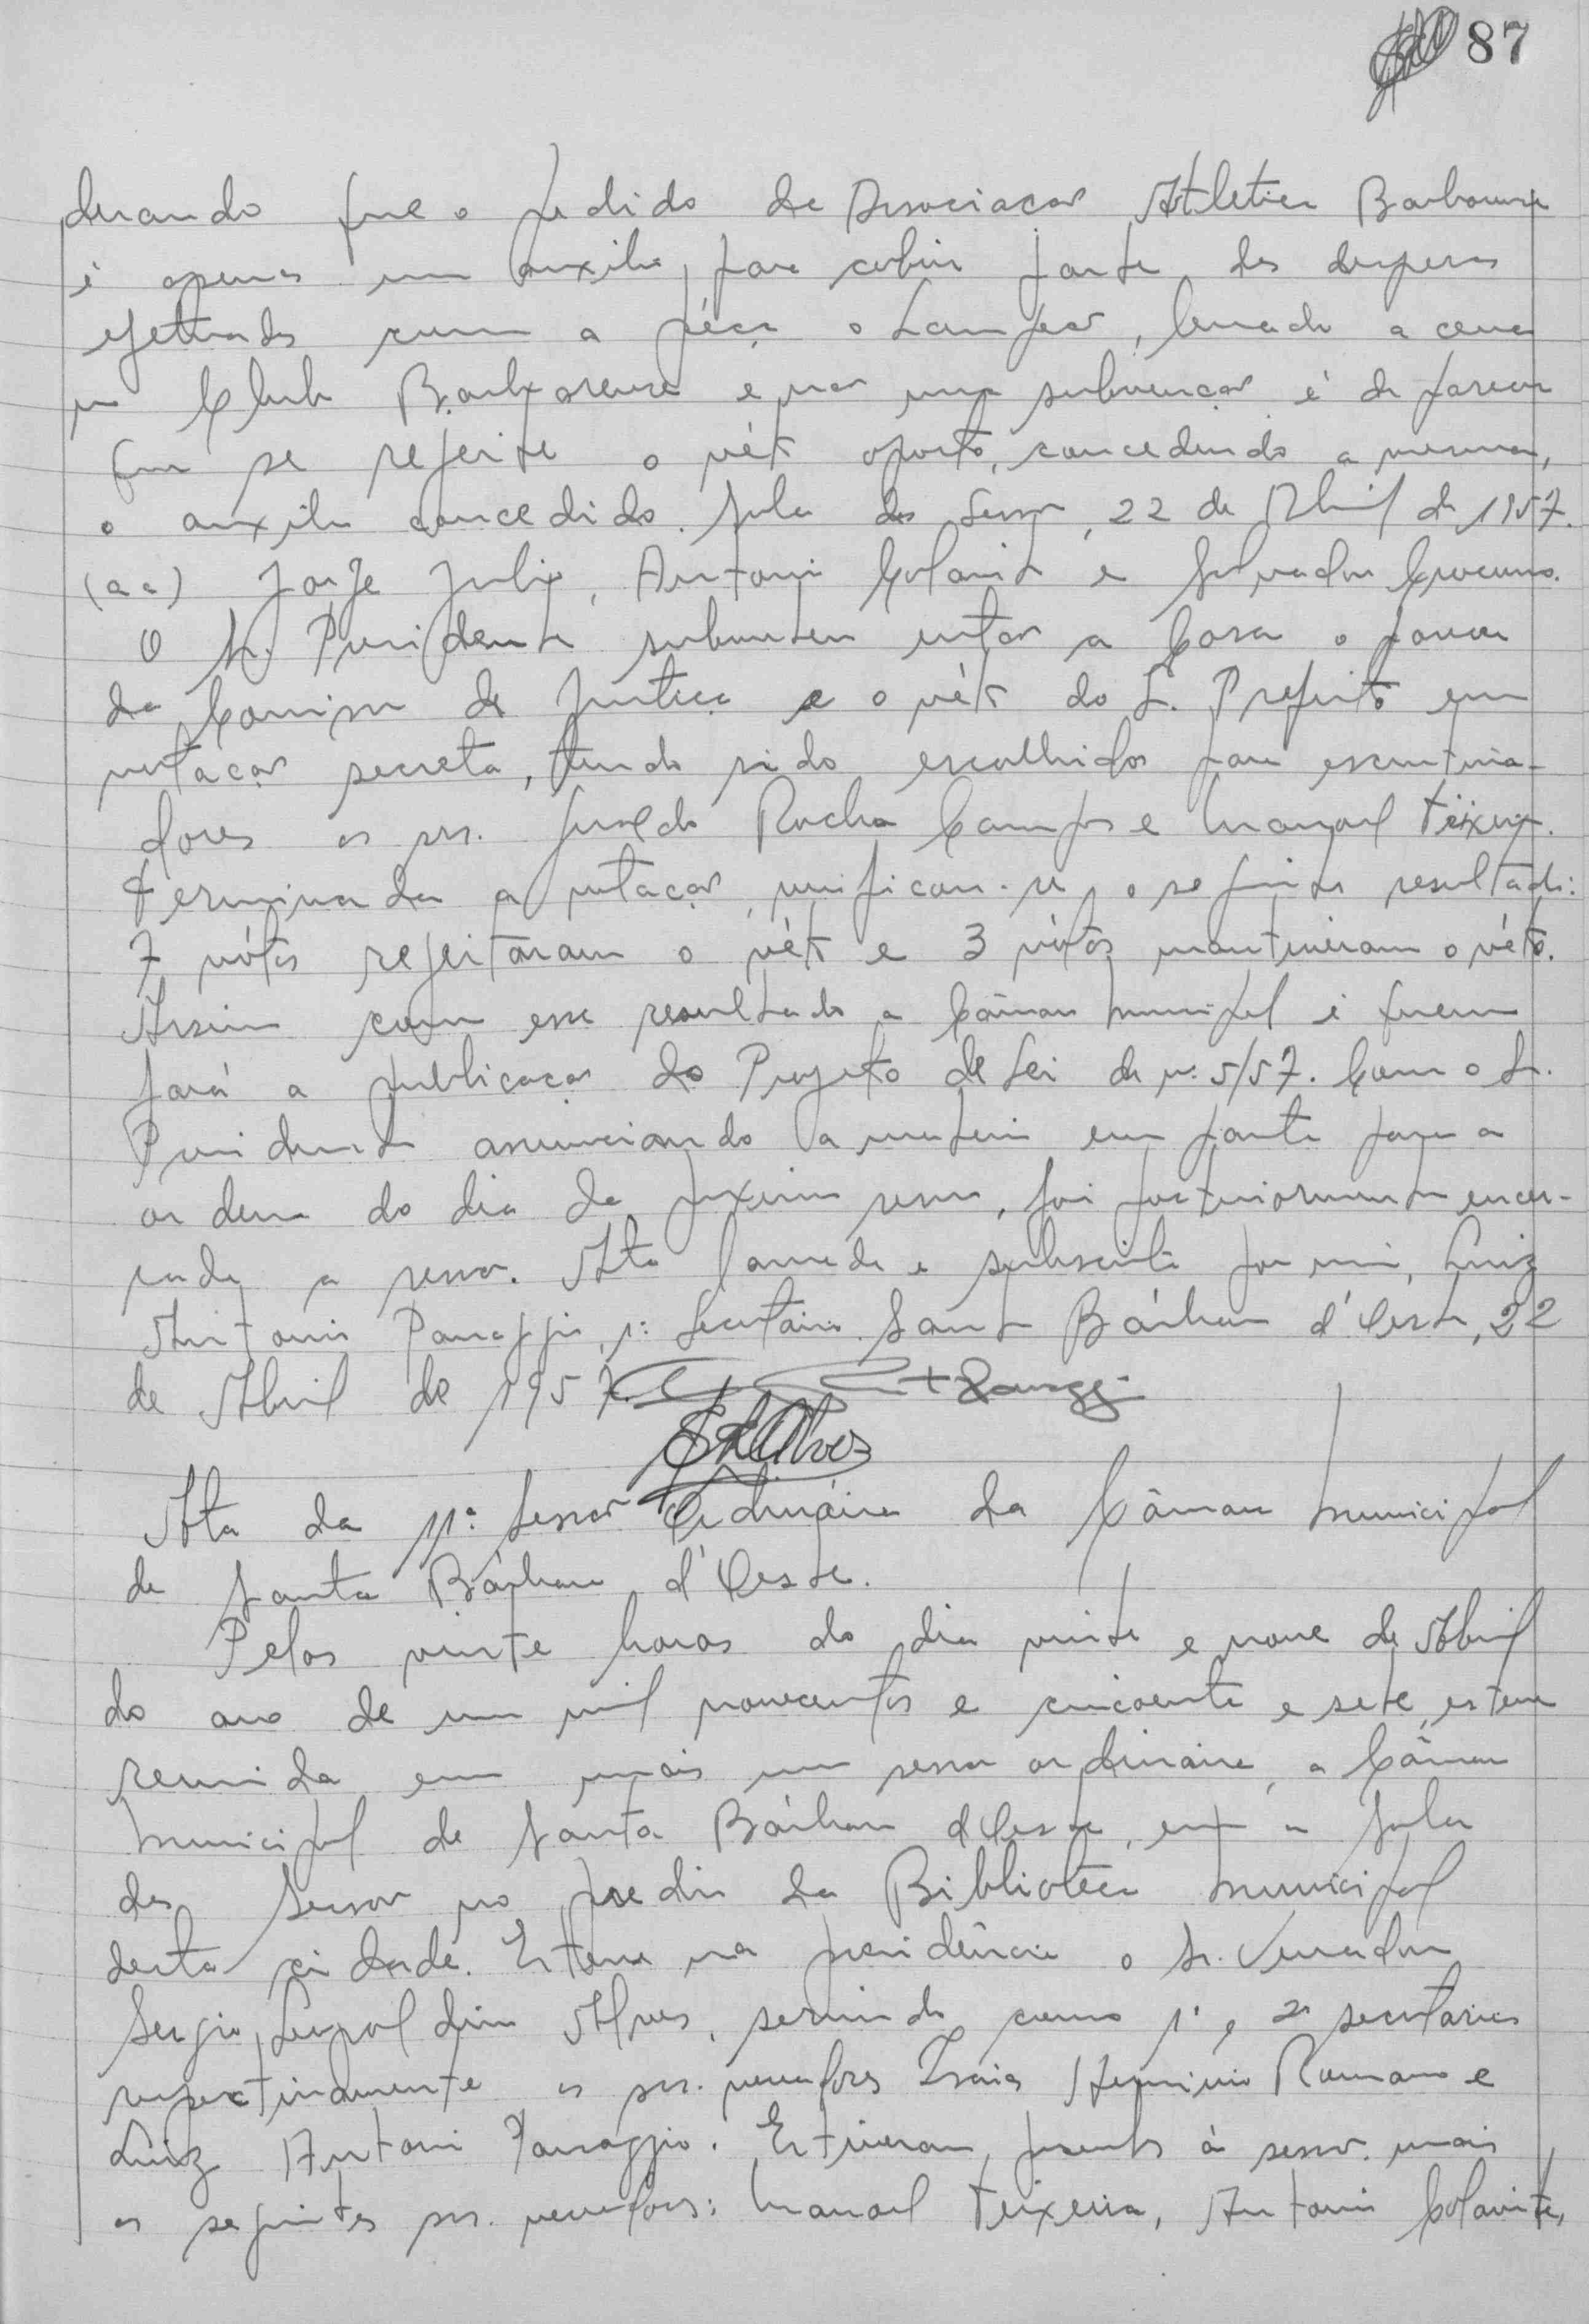 87
derando que o pedido da Associação Atletica Barbarense
é apenas um auxilio para cobrir parte das despesas
efetuadas com a péça o Lampeão, levada a cena
no Clube Barbarense e não uma subvenção é de parecer
que se rejeite o véto oposto, concedendo a mesma,
o auxilio concedido. Sala das Sessões, 22 de Abril de 1957.
(aa) Jorge Julio, Antonio Colavite e Salvador
O Sr. Presidente submeteu então a Casa o parecer
da Comissão de Justiça e o véto do Sr. Prefeito em
votação secreta, tendo sido escolhidos para escrutina-
dores os srs. Juseldo Rocha Campos e Manoel Teixeira.
Terminada a votação, verificou-se o seguinte resultado:
7 vótos rejeitaram o véto e 3 vótos mantiveram o véto.
Assim com esse resultado a Câmara Municipal é quem
fará a publicação do Projeto de Lei de nº 5/57. Com o Sr.
Presidente anunciando a materia em pauta para a
ordem do dia da proxima sessão, foi posteriormente encer-
rada a sessão. Ata lavrada e subscrita por mim, Luiz
Antonio Panaggio, 1º Secretário. Santa Bárbara d'Oeste, 22
de Abril de 1957.
Ata da 11ª Sessão Ordinária da Câmara Municipal
de Santa Bárbara d'Oeste.
Pelas vinte horas do dia vinte e nove de Abril
do ano de um mil novecentos e cincoenta e sete, esteve
reunida em mais uma sessão ordinária, a Câmara
Municipal de Santa Bárbara d'Oeste, em a sala
das Sessões no predio da Biblioteca Municipal
desta cidade. Esteve na presidência o Sr. Vereador
Sergio Leopoldino Alves, servindo como 1º e 2º secretários
respectivamente os srs. vereadores Isaias Herminio Romano e
Luiz Antonio Panaggio. Estiveram presentes à sessão mais
os seguintes srs. vereadores: Manoel Teixeira, Antonio Colavite,